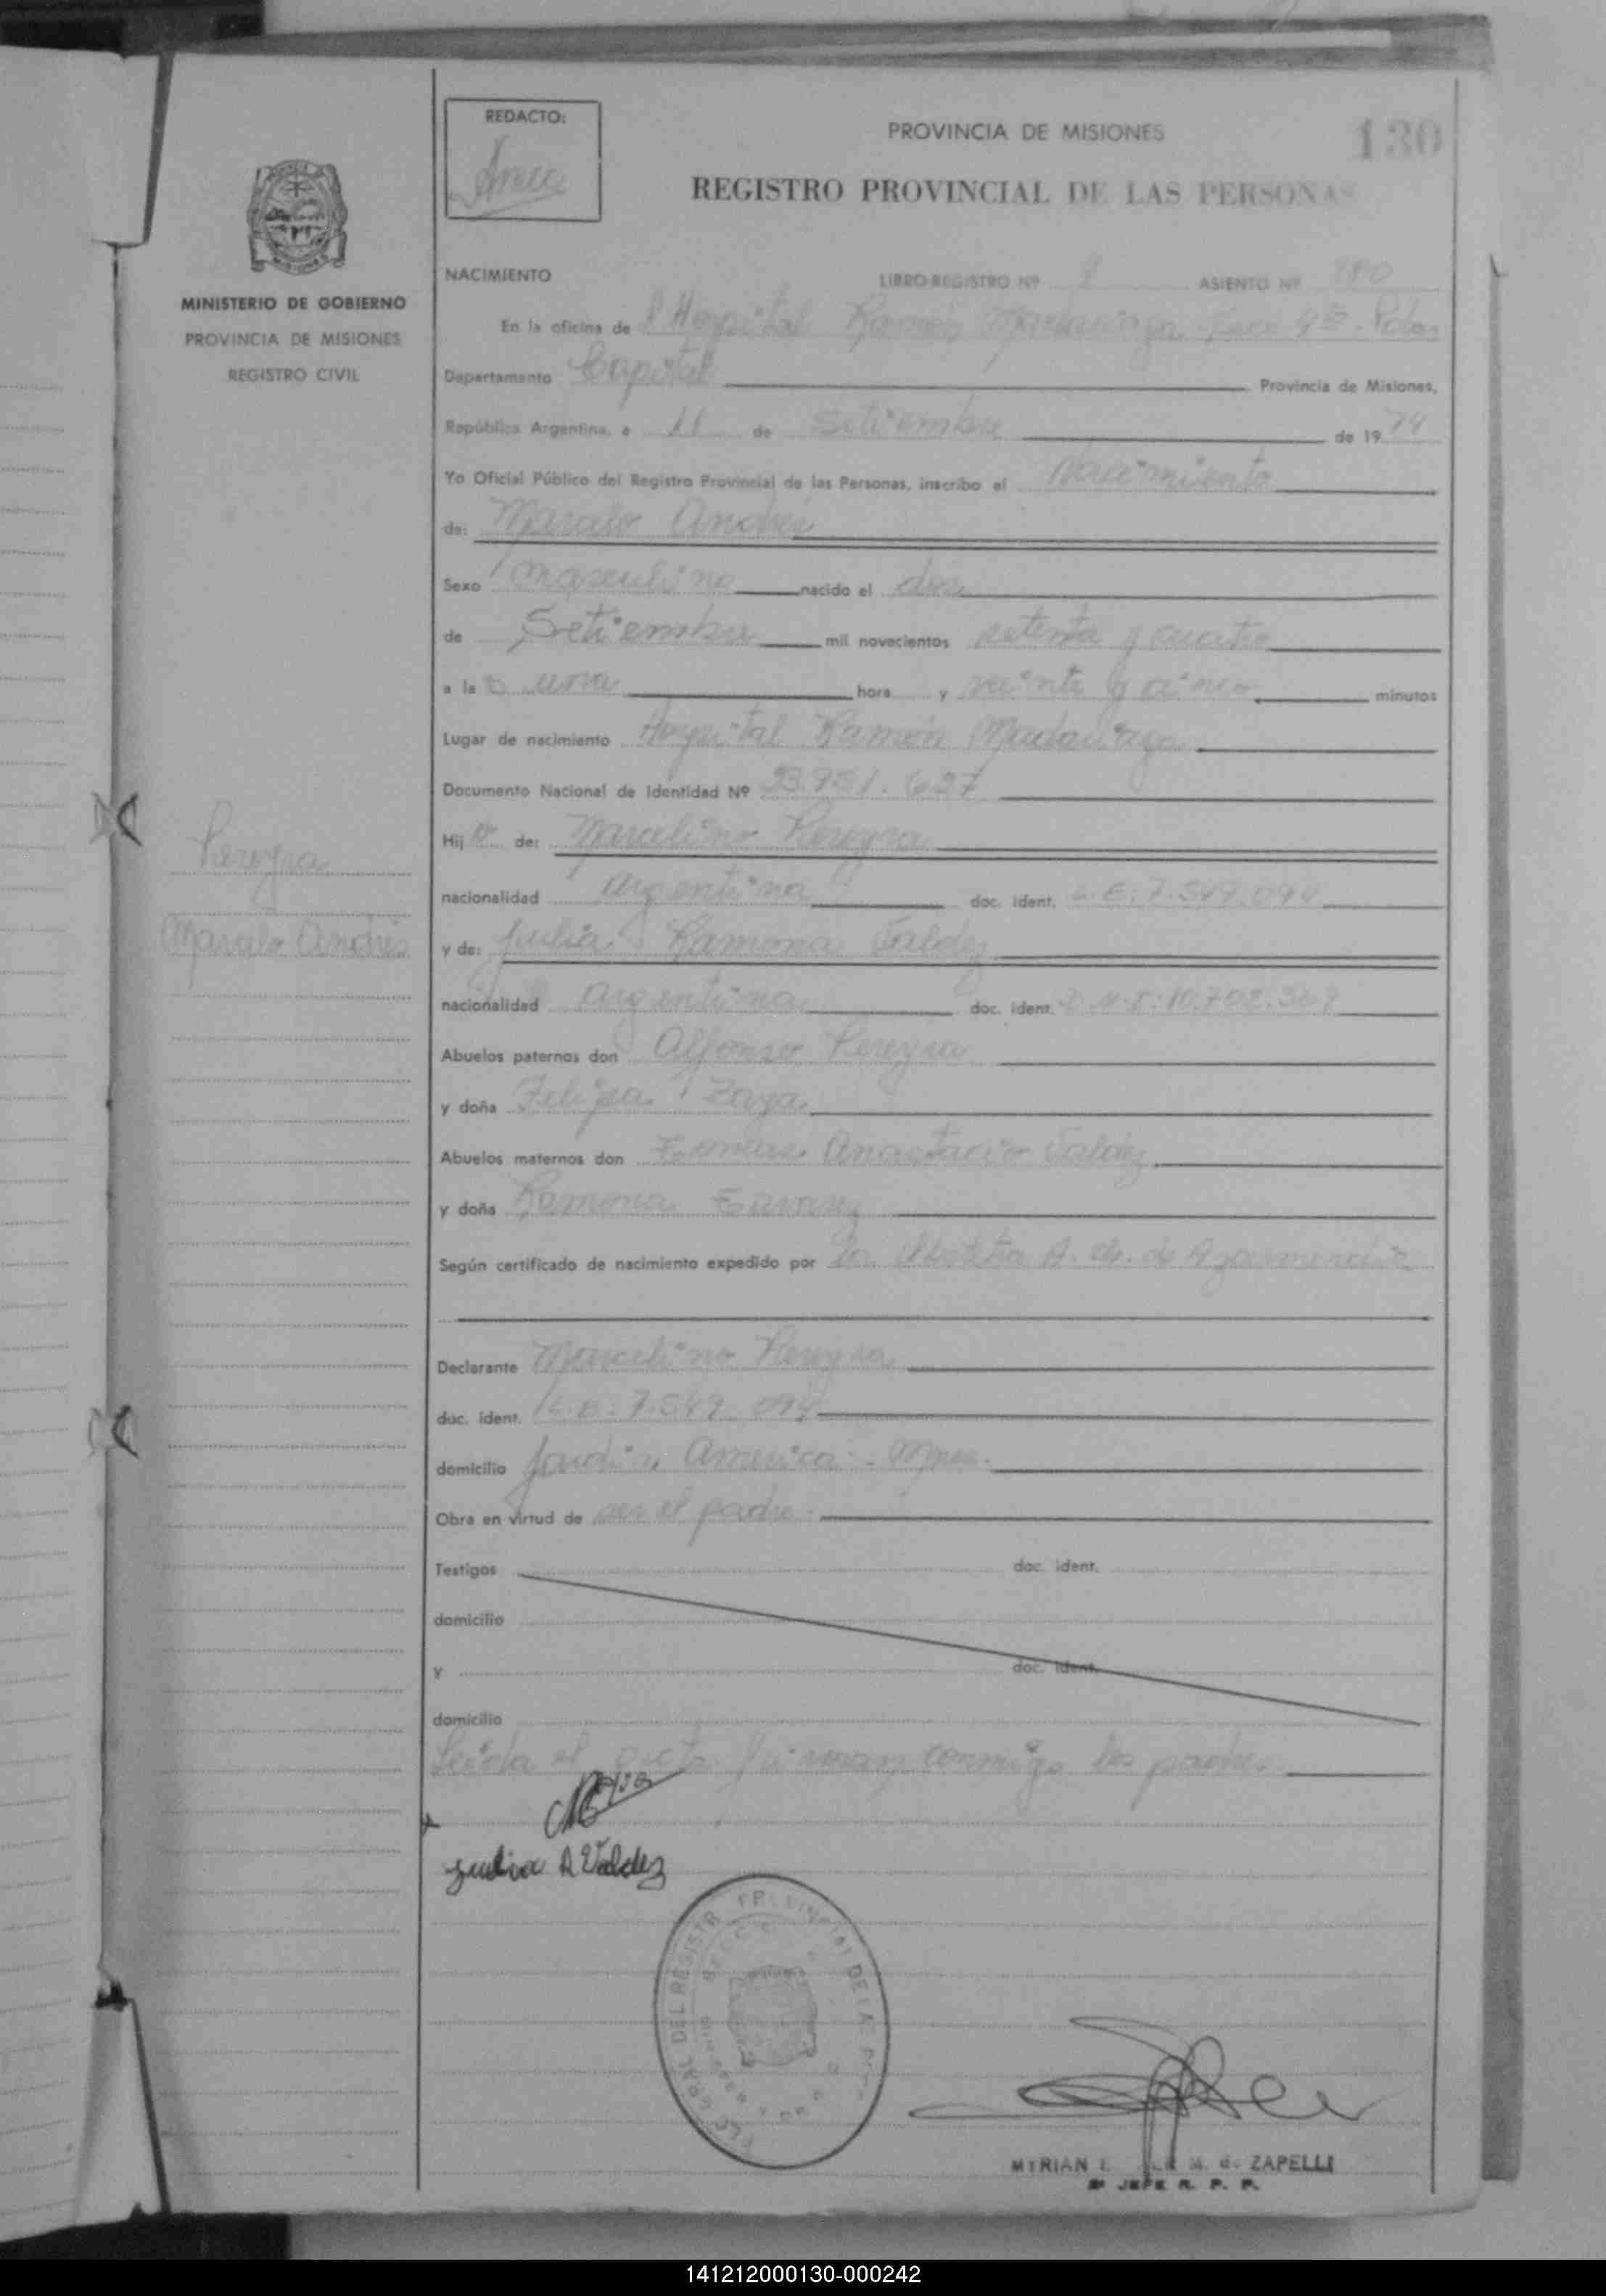 REDACTO:
PROVINCIA DE MISIONES
130
REGISTRO PROVINCIAL DE LAS PERSONAS
MINISTERIO DE GOBIERNO
PROVINCIA DE MISIONES
REGISTRO CIVIL
NACIMIENTO LIBRO-REGISTRO Nº ASIENTO Nº
En la oficina de l'Hospital Ramón Madariaga
Departamento Capital Provincia de Misiones,
República Argentina, a 11 de Setiembre de 1974
Yo Oficial Público del Registro Provincial de las Personas, inscribo el Nacimiento
de: Marcelo Andrés
Sexo masculino nacido el dos
de Setiembre mil novecientos setenta y cuatro
a la una hora y veinte y cinco minutos
Lugar de nacimiento Hospital Ramón Madariaga
Documento Nacional de Identidad Nº 23.951.627
Hijo de: Marcelino Pereyra
Pereyra
nacionalidad argentina doc. ident. L.E: 7.549.094
Marcelo Andrés
y de: Julia Ramona Valdez
nacionalidad argentina doc. ident. D.N.I: 10.702.369
Abuelos paternos don Alfonso Pereyra
y doña Felipa Zaya
Abuelos maternos don Anastacio Valdez
y doña Ramona
Según certificado de nacimiento expedido por
Declarante Marcelino Pereyra
doc. ident. L.E: 7.549.094
domicilio Jardín America - Mnes.
Obra en virtud de ser el padre.
Testigos doc. ident.
domicilio
y doc. ident.
domicilio
Leída el acta firman conmigo los padres
Julia R Valdez
MYRIAN M. G. ZAPELLI
JEFE R. P. P.
141212000130-000242